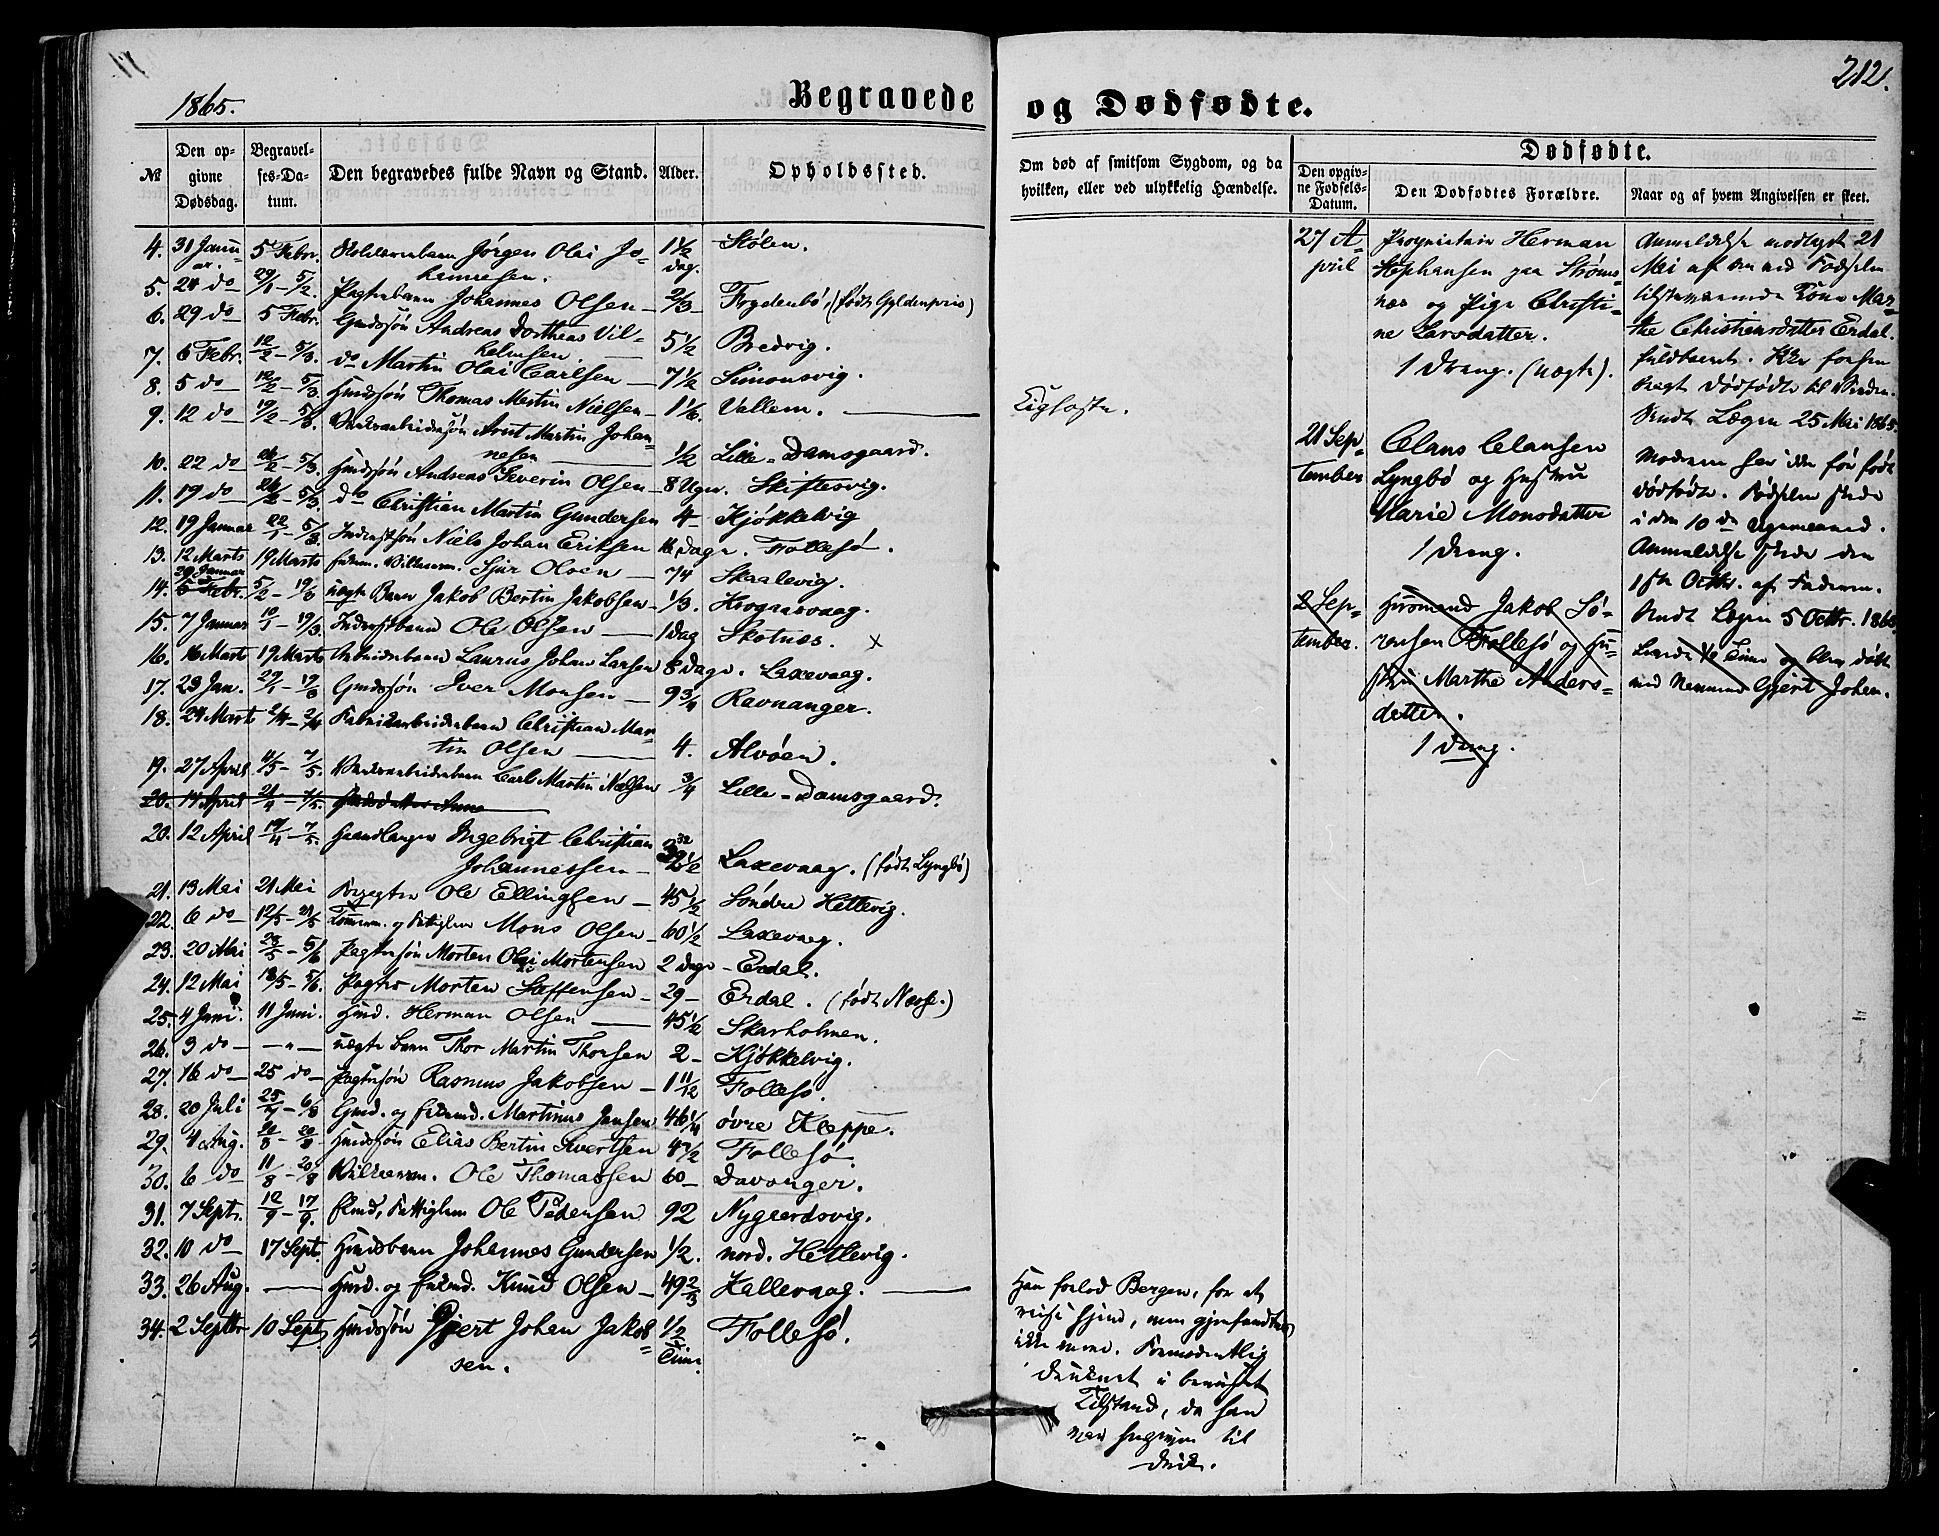 1865.
Begravede
№
Den opgivne Dødsdag.
Begravelses-Datum.
Den begravedes fulde Navn og Stand.
Alder.
Opholdssted.
4. 31 Januar. 5 Febr. Jørgen Olai Johannesen. 1 1/2 dag. Stølen.
5. 24 do 29/1 – 5/2. Pagterbarn Johannes Olsen – 2/3 – Frydenbø, (født Gyldenpris)
6. 29 do – 5 Febr. Gmdssøn Andreas Dortheus Vilhelmsen – 5 1/2 Bredvig.
7. 6 Febr. 12/2 – 5/3. do Martin Olai Carlsen – 7 1/2 Simonsvig.
8. 5 do 12/2 – 5/3 Hmdssøn Thomas Martin Nielsen – 1 1/6. Vallem. –
9. 12 do 19/2 – 5/3. Arnt Martin Johannesen – 1/2 Lille-Damsgaard.
10. 22 do 26/2 – 5/3. Hmdssøn Andreas Severin Olsen – 8 Uger. Skiftesvig.
11. 19 do 26/2 – 5/3. do Christian Martin Gundersen 4 – Kjøkkelvig
12. 19 Januar 22/1 – 5/3. Inderstsøn Niels Johan Eriksen 16 Dage. Follesø.
13. 12 Marts 19 Marts Sjur Olsen – 74 Skaalevig.
14. 29 Januar 5/2 – 19/3 uægte Barn Jakob Bertin Jakobsen – 1/3. Krogaasvaag.
15. 7 Januar 10/1 – 19/3. Inderstbarn Ole Olsen – 1 Dag Skotnæs. x
16. 16 Marts 19 Marts Arbeiderbarn Laurus Johan Larsen 8 Dage. Laxevaag.
17. 23 Jan. 29/1 – 19/3 Gmdssøn Iver Monsen – 9 3/4 Ravnanger.
18. 24 Marts 2/4 – 2/4 Fabrikarbeiderbarn Christian Martin Olsen – 4. Alvøen.
19. 27 April 4/5 – 7/5. Carl Martin Nielsen 3/4 Lille-Damsgaard.
20. 14 April 21/4 – 7/5. Anne
20. 12 April 19/4 – 7/5. Haandlanger Ingebrigt Christian Johannessen – 32 1/2 Laxevaag. (født Lyngbø)
21. 13 Mai 21 Mai Ole Ellingsen – 45 1/2 Søndre Hetlevig.
22. 6 do – 12/5 – 21/5 Mons Olsen – 60 1/2 Laxevaag.
23. 20 Mai 28/5 – 5/6 Pagtersøn Morten Olai Mortensen 2 Dage – Erdal.
24. 12 Mai 18/5 – 5/6. Pagter Morten Steffensen – 29 – Erdal. (født Næsse.)
25. 4 Juni. 11 Juni. Hmd. Herman Olsen – 45 1/2 Skarholmen.
26. 3 do – –"– uægte barn Thor Martin Thorsen 2 – Kjøkkelvig.
27. 16 do – 25 do – Pagtersøn Rasmus Jakobsen – 1 11/12 Follesø.
28. 20 Juli 25/7 – 6/8 Gmd. og Martinus Jansen 46 1/4 øvre Kleppe.
29. 4 Aug. 20/8 – 20/8 Hmdssøn Elias Bertin Sivertsen 4 1/2 Follesø.
30. 6 do – 11/8 – 20/8 Ole Thomassen 60 – Davanger.
31. 7 Septr. 12/9 – 17/9. Ole Pedersen 92 Nygaardsvig.
32. 10 do – 17 Sept. Hmdsbarn Johannes Gundersen 1/2. nord. Hetlevig.
33. 26 Aug. – Hmd. og Knud Olsen – 49 2/3 Hallevaag. –
34. 2 Septbr 10 Sept Hmdssøn Gjert Johan Jakobsen. 1/2 Time. Follesø.
og Dødfødte.
212.
Om død af smitsom Sygdom, og da
hvilken, eller ved ulykkelig Hændelse.
Ligfaste.
Han forlod Bergen, for at
reise hjem, men gjenfandtes
ikke mere. Formodentlig
druknet i beruset
Tilstand, da han
var hengiven til
Drik.
Dødfødte.
Den opgivne Fødsels-Datum.
Den Dødfødtes Forældre.
Naar og af hvem Angivelsen er skeet.
27 April
Proprietair Herman
Stephansen paa Strømsnæs
og Pige Christine
Larsdatter.
1 Dreng. (uægte).
Anmeldelse modtaget 21
Mai af den ved Fødselen
tilstedeværende Kone Marthe
Christiensdatter Erdal.
Sendt Lægen 25 Mai 1865.
21 September
Claus Clausen
Lyngbø og Hustru
Marie Monsdatter
1 Dreng.
Moderen har ikke før født
dødfødte. Fødselen skede
i den 10de
Anmeldelse skede den
1ste Octbr. af Faderen.
Sendt Lægen 5 Octbr. 1865
2 September.
Huusmand Jakob Sørensen
Follesø og Hustru
Marthe Andersdatter.
1 Dreng.
Levede 1/2 Time og blev døbt
med Navnet Gjert Johan.